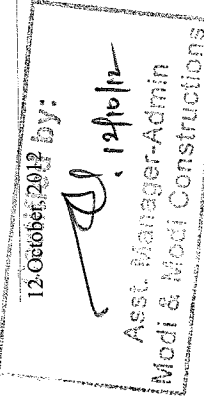 12 October, 2012
by:
12/10/12
Asst. Manager-Admin
Modi & Modi Constructions